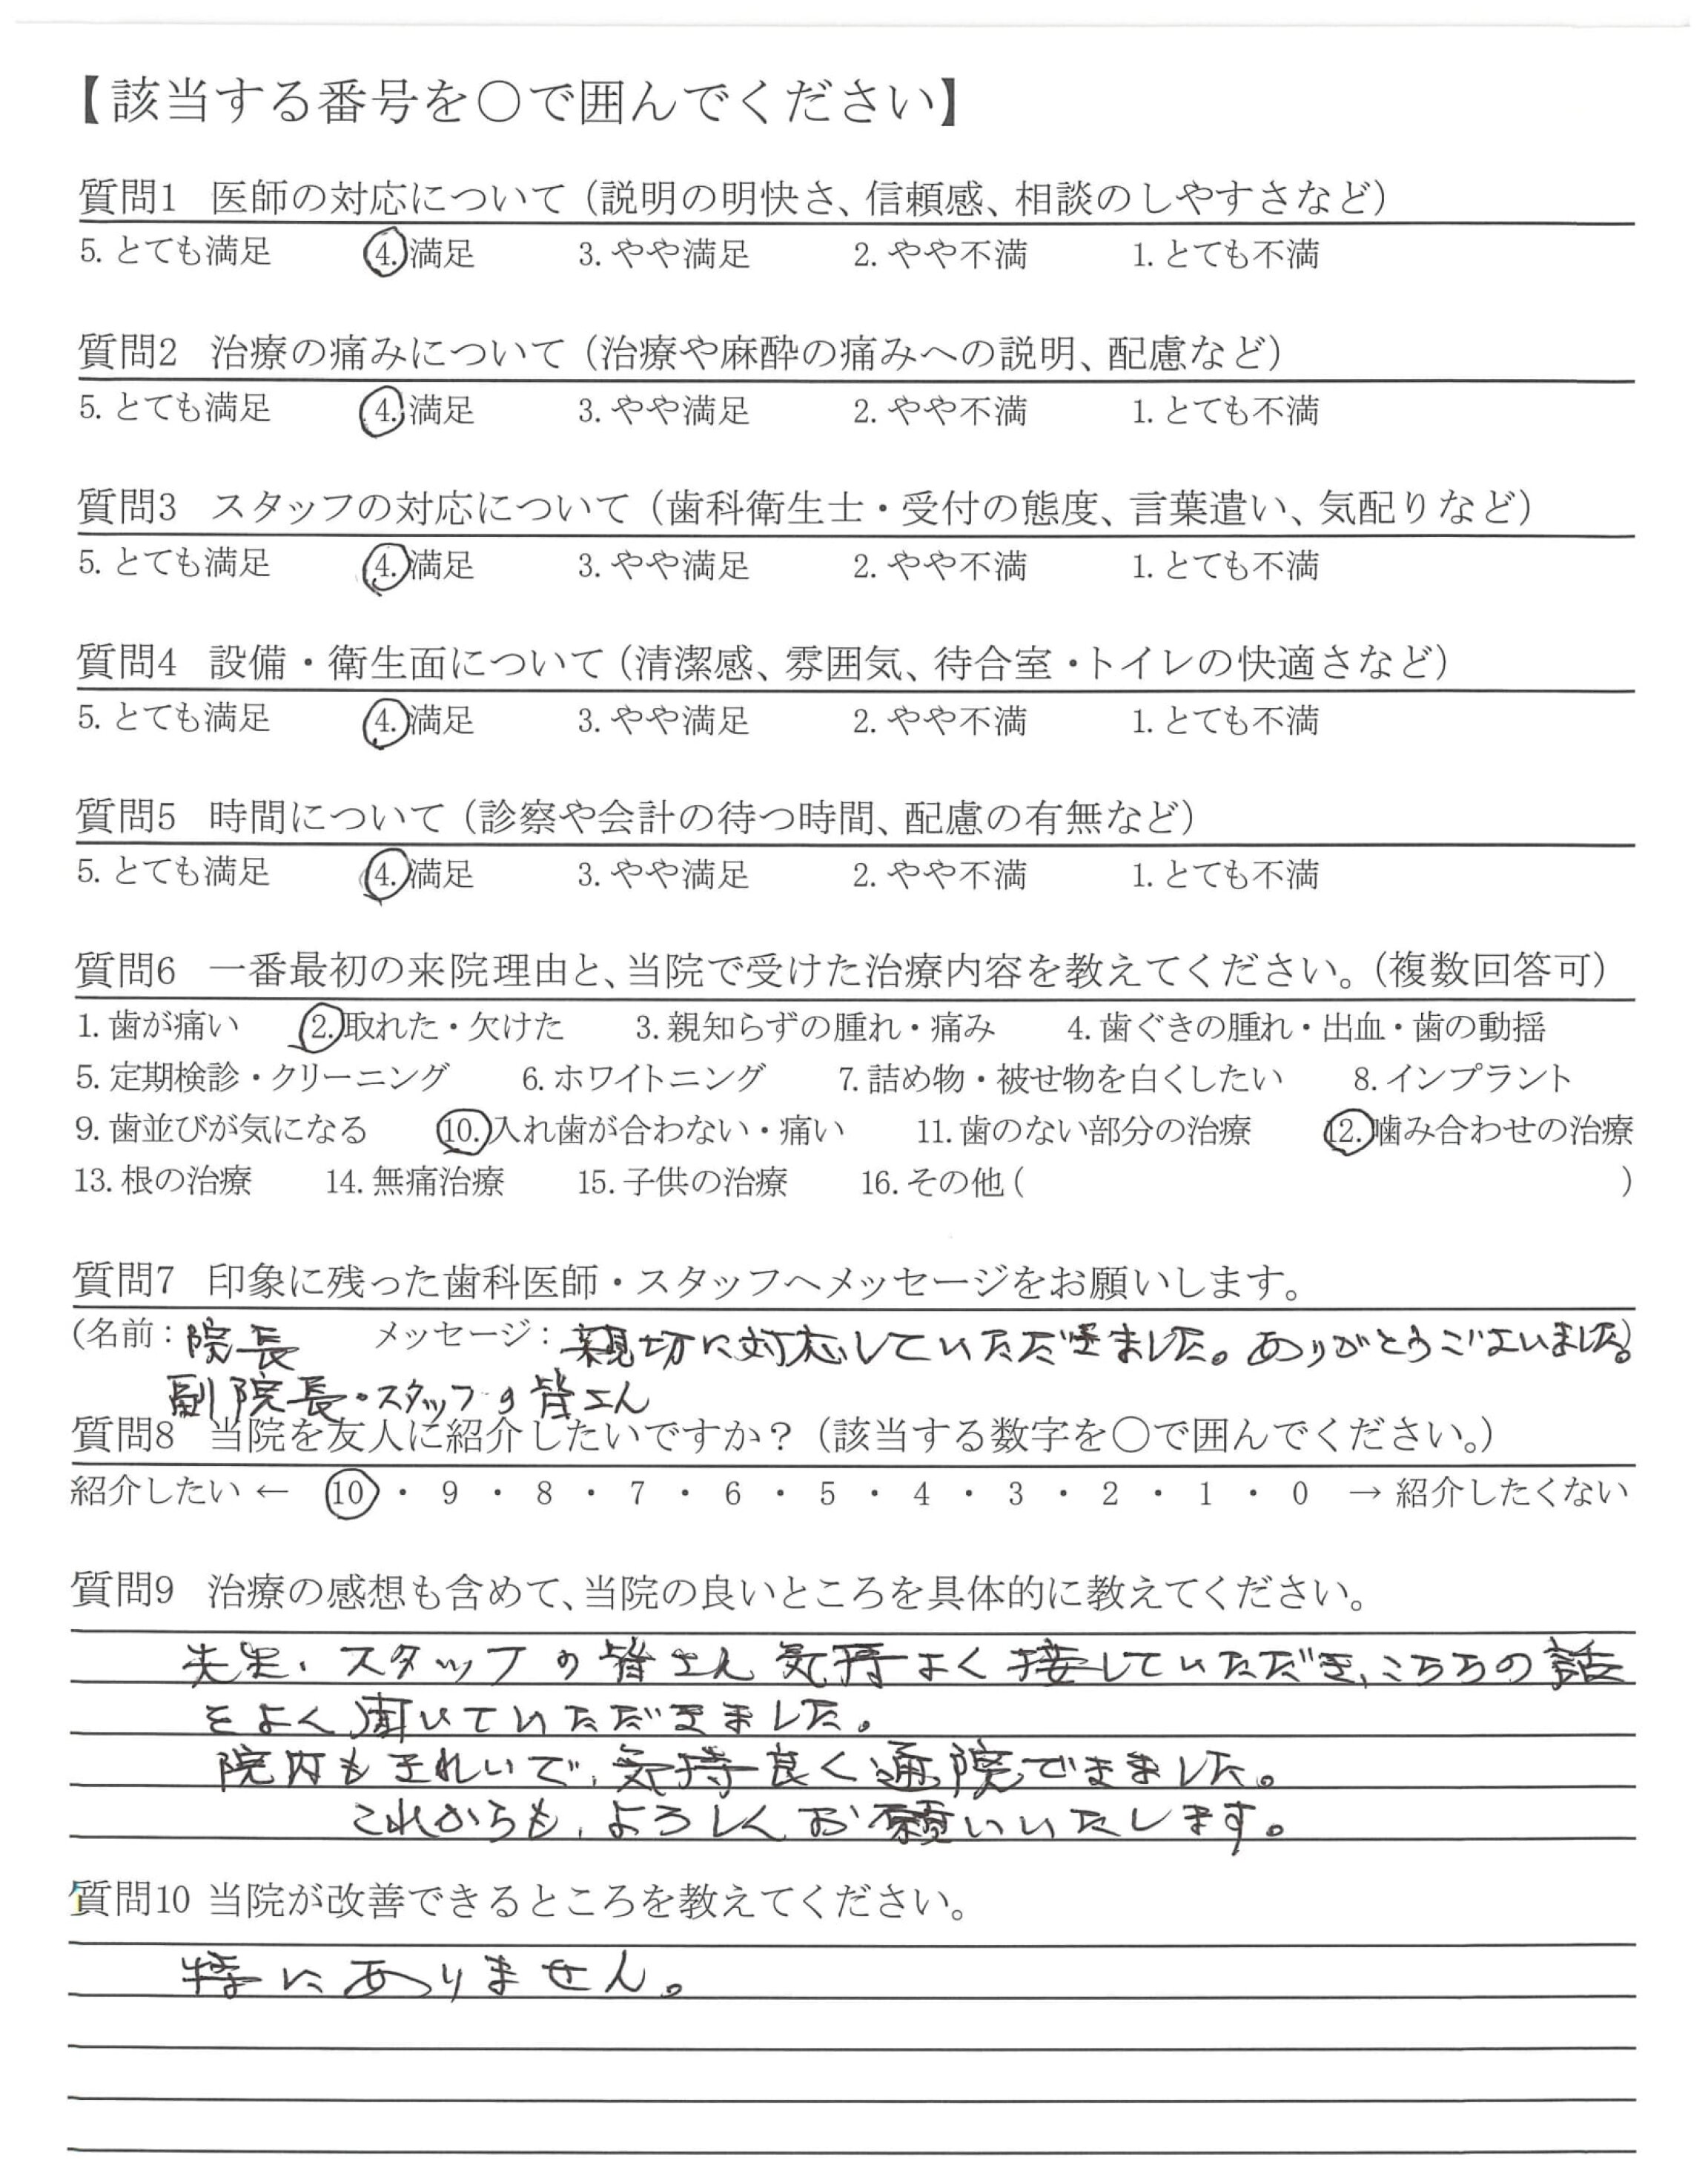 【該当する番号を○で囲んでください】
質問1 医師の対応について（説明の明快さ、信頼感、相談のしやすさなど）
5. とても満足 4. 満足 3. やや満足 2. やや不満 1. とても不満
質問2 治療の痛みについて（治療や麻酔の痛みへの説明、配慮など）
5. とても満足 4. 満足 3. やや満足 2. やや不満 1. とても不満
質問3 スタッフの対応について（歯科衛生士・受付の態度、言葉遣い、気配りなど）
5. とても満足 4. 満足 3. やや満足 2. やや不満 1. とても不満
質問4 設備・衛生面について（清潔感、雰囲気、待合室・トイレの快適さなど）
5. とても満足 4. 満足 3. やや満足 2. やや不満 1. とても不満
質問5 時間について（診察や会計の待つ時間、配慮の有無など）
5. とても満足 4. 満足 3. やや満足 2. やや不満 1. とても不満
質問6 一番最初の来院理由と、当院で受けた治療内容を教えてください。（複数回答可）
1. 歯が痛い 2. 取れた・欠けた 3. 親知らずの腫れ・痛み 4. 歯ぐきの腫れ・出血・歯の動揺
5. 定期検診・クリーニング 6. ホワイトニング 7. 詰め物・被せ物を白くしたい 8. インプラント
9. 歯並びが気になる 10. 入れ歯が合わない・痛い 11. 歯のない部分の治療 12. 噛み合わせの治療
13. 根の治療 14. 無痛治療 15. 子供の治療 16. その他（ ）
質問7 印象に残った歯科医師・スタッフへメッセージをお願いします。
（名前：院長 メッセージ：親切に対応していただきました。ありがとうございました。）
副院長・スタッフの皆さん
質問8 当院を友人に紹介したいですか？（該当する数字を○で囲んでください。）
紹介したい ← 10 ・ 9 ・ 8 ・ 7 ・ 6 ・ 5 ・ 4 ・ 3 ・ 2 ・ 1 ・ 0 → 紹介したくない
質問9 治療の感想も含めて、当院の良いところを具体的に教えてください。
先生、スタッフの皆さん気持よく接していただき、こちらの話
をよく聞いていただきました。
院内もきれいで、気持良く通院できました。
これからも、よろしくお願いいたします。
質問10 当院が改善できるところを教えてください。
特にありません。